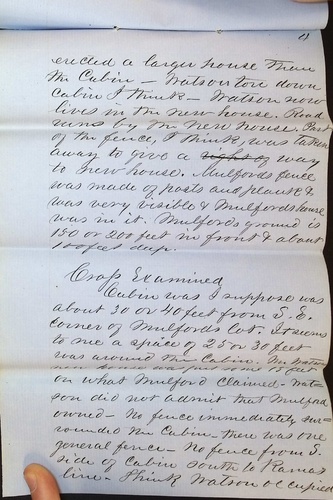 erected a larger house than
the Cabin – Watson tore down
Cabin I think – Watson now
lives in the new house. Road
runs by the new house. Part
of the fence, I think, was taken
away to give a right of way
to new house. Mulfords fence
was made of posts and plank &
was very visible & Mulfords house
was in it. Mulfords ground is
150 or 200 feet in front & about
100 feet deep.
Crop Examined
Cabin was I suppose was
about 30 or 40 feet from S.E.
corner of Mulfords Lot. It seems
to me a space of 25 or 30 feet
was around the Cabin.
on what Mulford claimed – Wat-
son did not admit that Mulford
owned – No fence immediately sur-
rounded the Cabin – there was one
general fence – No fence from S.
side of Cabin south to Ramas
line – I think Watson occupied